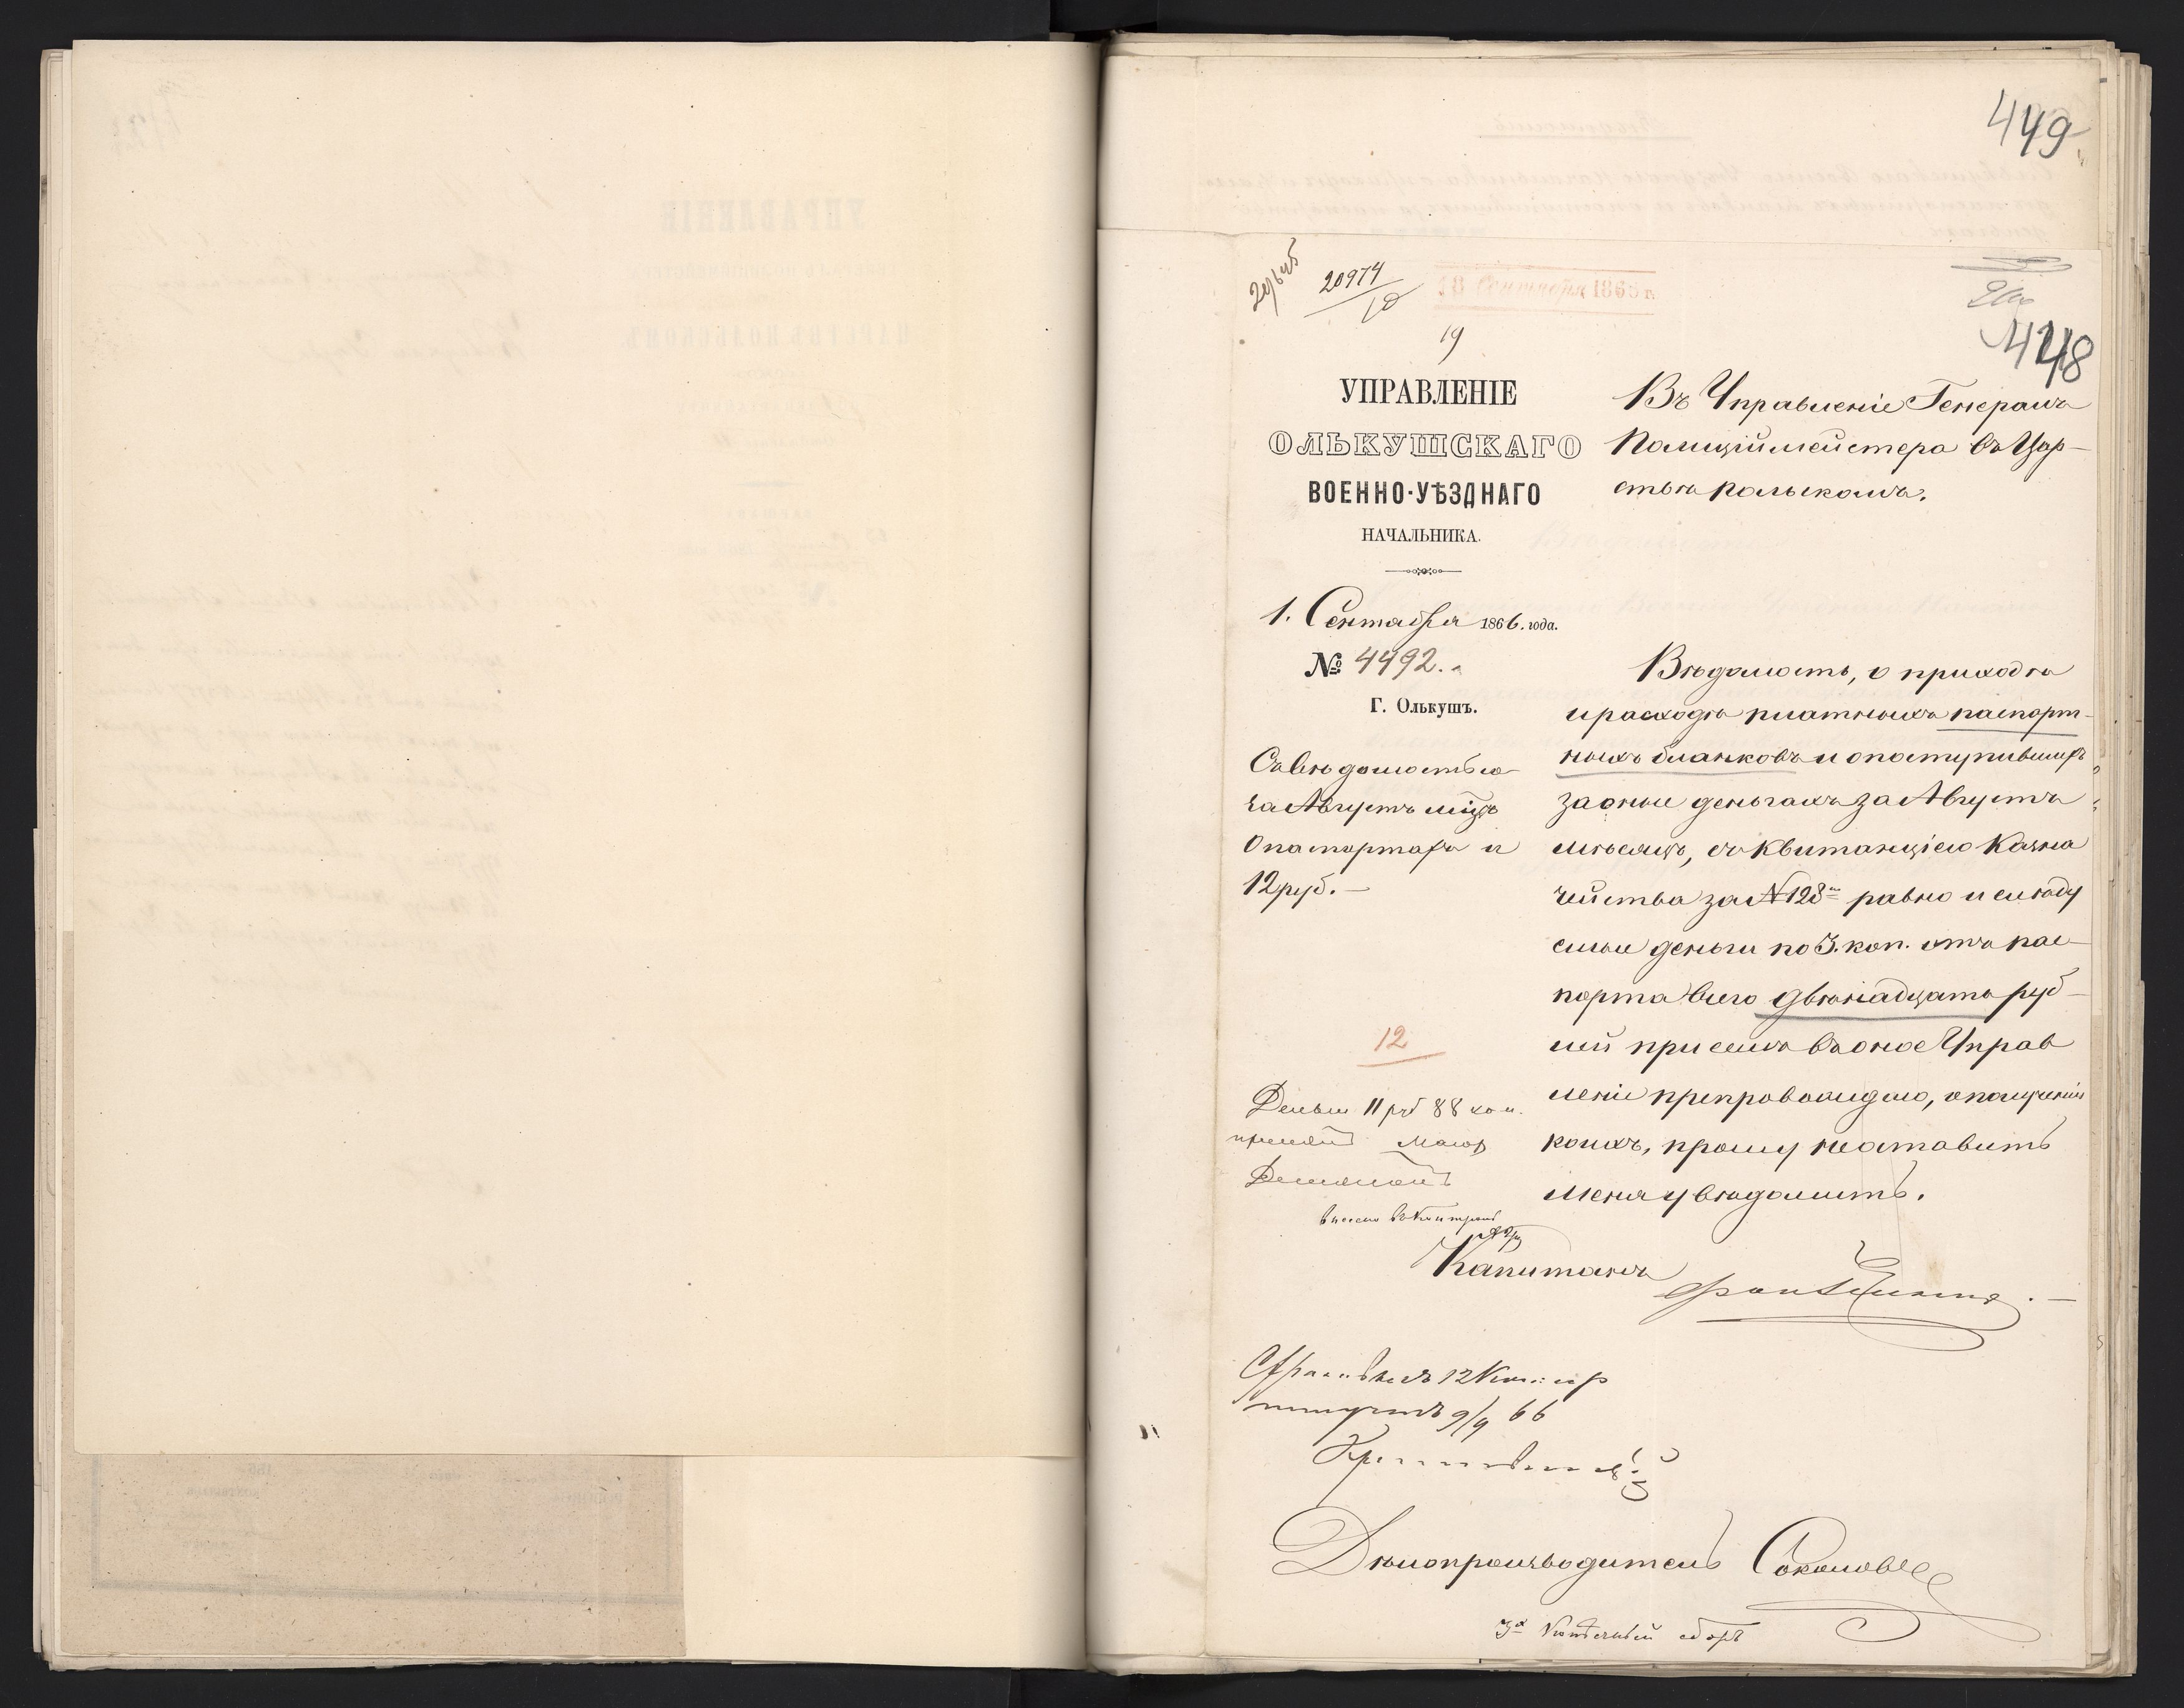 449
20974
18
18 Сентября 1866 г.
19
448
УПРАВЛЕНІЕ
ОЛЬКУШСКАГО
ВОЕННО-УѢЗДНАГО
НАЧАЛЬНИКА.
1. Сентября 1866. года.
№ 4492.
Г. Олькушъ.
Съ вѣдомостью
за Августъ мцъ
о паспортахъ и
12 руб. —
Въ Управленіе Генералъ
Полиціймейстера въ Цар-
ствѣ Польскомъ.
Вѣдомость, о приходѣ
и расходѣ платныхъ паспорт-
ныхъ бланковъ и о поступившихъ
за оные деньгахъ за Августъ
мѣсяцъ, съ квитанціею Казна
чейства за № 128 равно и слѣду
емые деньги по 3. коп. отъ пас-
порта всего двѣнадцать руб-
лей при семъ въ оное Управ
леніе препровождаю, о полученіи
коихъ, прошу неоставить
меня увѣдомить.
12
Деньги 11 руб 88 коп.
принялъ Маіоръ
внесено въ
Капитанъ
12
9/9 66
Дѣлопроизводитель Соколовъ